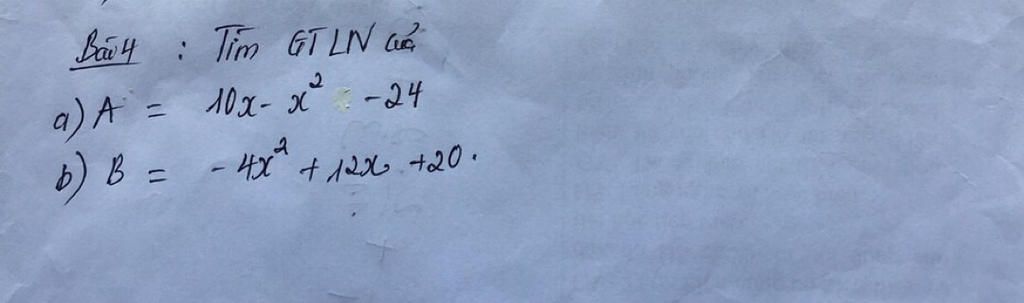 Bài 4 : Tìm GTLN của
a) A = 10x - x² - 24
b) B = - 4x² + 12x + 20.